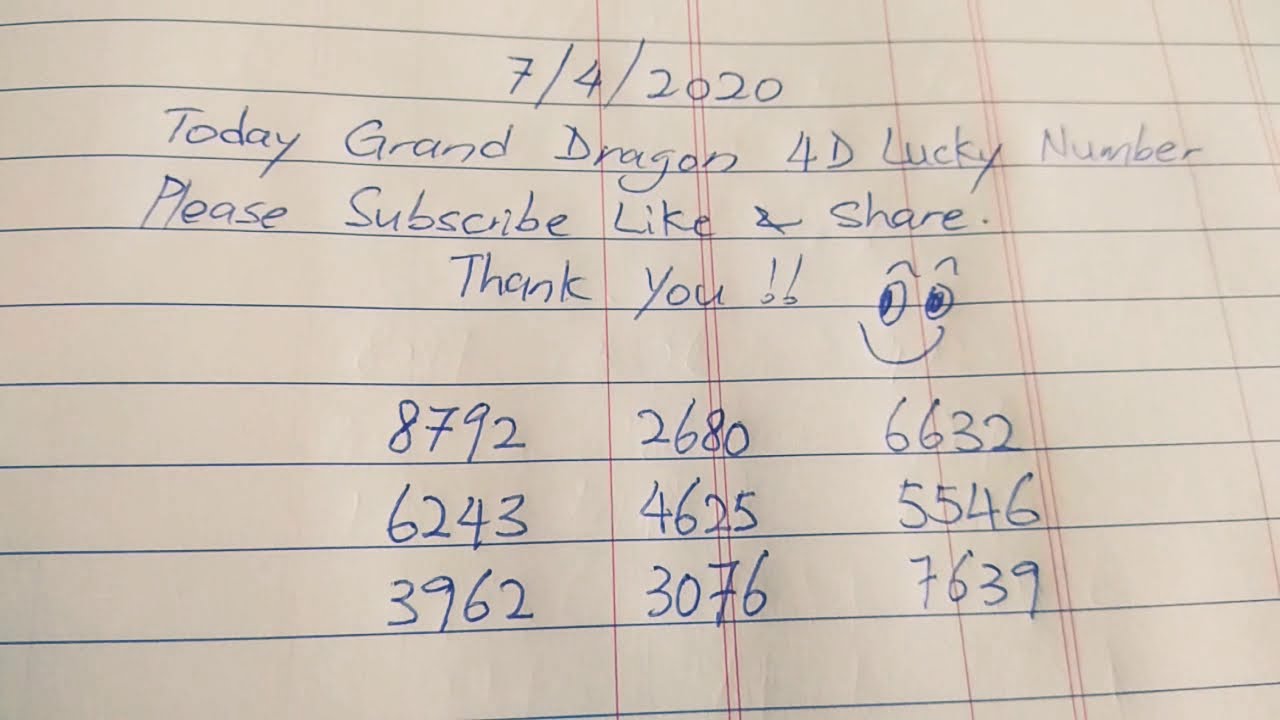 7/4/2020
Today Grand Dragon 4D Lucky Number
Please Subscribe Like & Share.
Thank You !!
8792 2680 6632
6243 4625 5546
3962 3076 7639